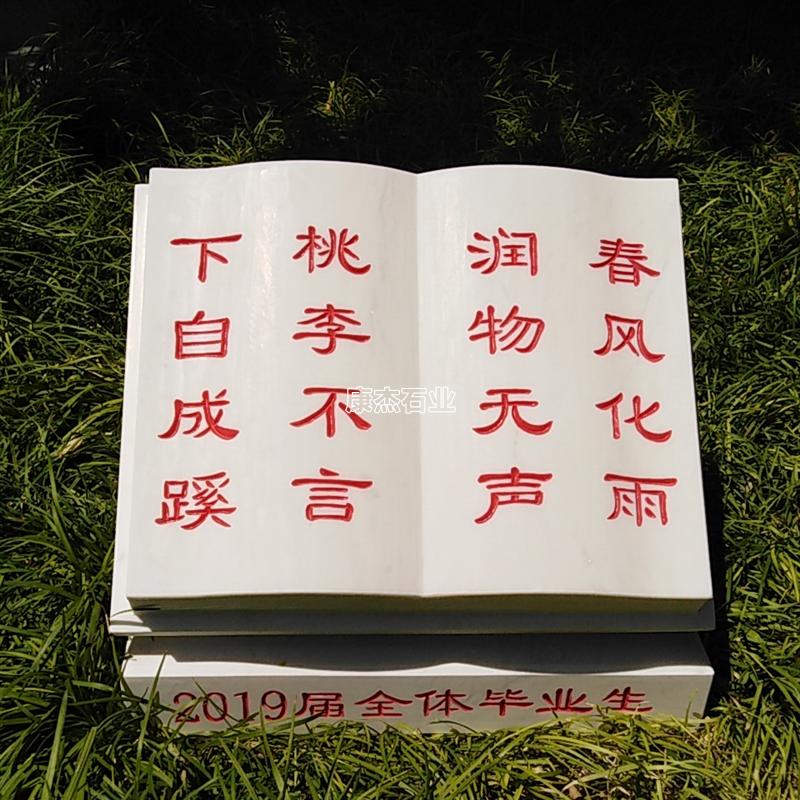 春风化雨
润物无声
桃李不言
下自成蹊
康杰石业
2019届全体毕业生